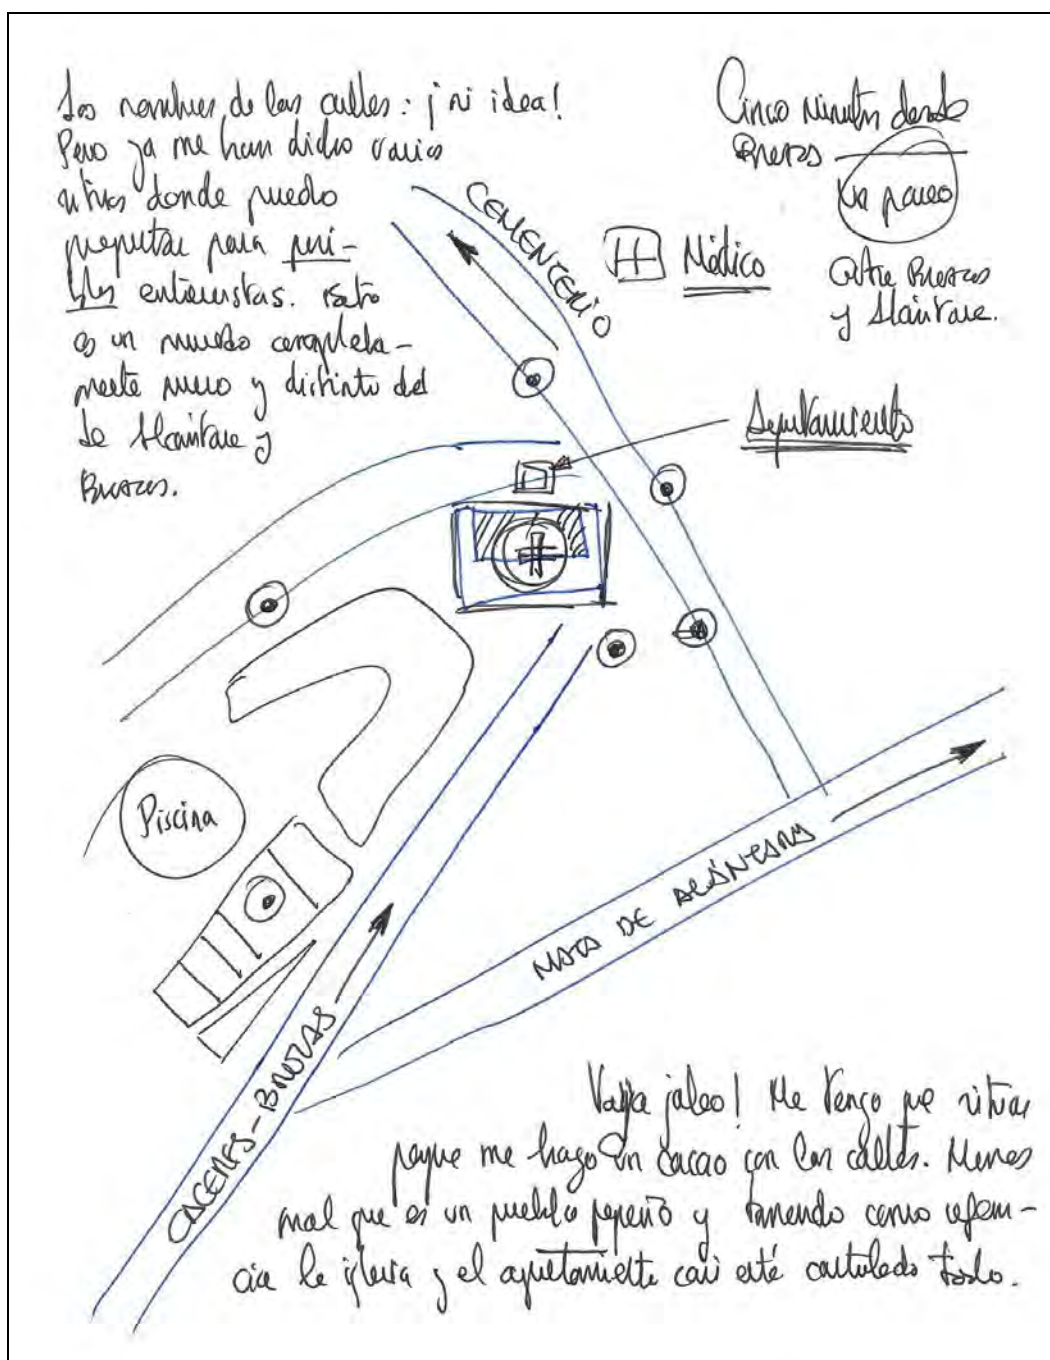 Los nombres de las calles: ¡ni idea!
Pero ya me han dicho varios
sitios donde puedo
preguntar para posi-
bles entrevistas. Esto
es un mundo completa-
mente nuevo y distinto del
de Alcántara y
Brozas.
Cinco minutos desde
Brozas
Un paseo
entre Brozas
y Alcántara.
Médico
CEMENTERIO
Ayuntamiento
Piscina
MATA DE ALCÁNTARA
CACERES-BROZAS
Vaya jaleo! Me tengo que situar
porque me hago un cacao con las calles. Menos
mal que es un pueblo pequeño y tomando como referen-
cia la iglesia y el ayuntamiento casi está controlado todo.